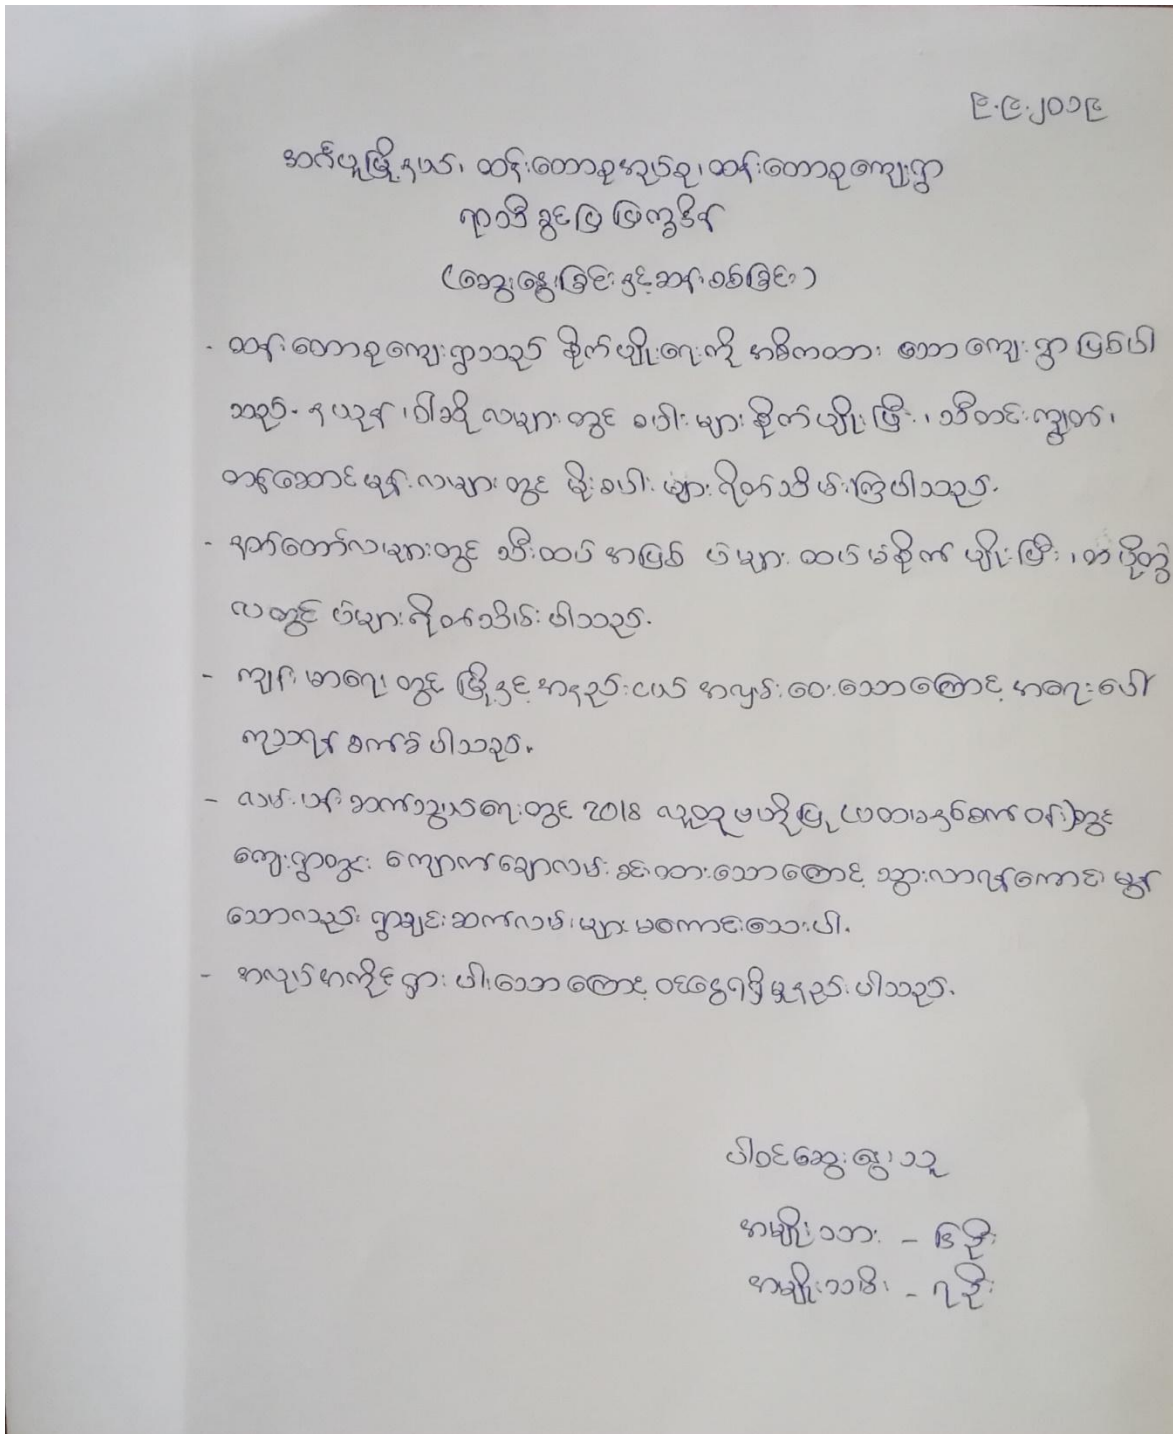 ၉.၉.၂၀၁၉
အင်္ဂပူမြို့နယ်၊ ထန်းတောစုအုပ်စု၊ ထန်းတောစုကျေးရွာ
ရာသီခွင်ပြ ပြက္ခဒိန်
(ဆွေးနွေးခြင်းနှင့်ဆန်းစစ်ခြင်း)
- ထန်းတောစုကျေးရွာသည် စိုက်ပျိုးရေးကို အဓိကထား သောကျေးရွာ ဖြစ်ပါ
သည်။ နယုန်၊ ဝါဆို လများတွင် စပါးများ စိုက်ပျိုးပြီး၊ သီတင်းကျွတ်၊
တန်ဆောင်မုန်းလများတွင် မိုးစပါးများ ရိတ်သိမ်းကြပါသည်။
- နတ်တော်လများတွင် သီးထပ်အဖြစ် ပဲများ ထပ်မံစိုက်ပျိုးပြီး၊ တပို့တွဲ
လတွင် ပဲများရိတ်သိမ်းပါသည်။
- ကျန်းမာရေးတွင် မြို့နှင့် အနည်းငယ် အလှမ်းဝေးသောကြောင့် အရေးပေါ်
ကုသရန် ခက်ခဲပါသည်။
- လမ်းပန်းဆက်သွယ်ရေးတွင် 2018 လူထုဗဟိုပြု (ပထမနှစ်စက်ဝန်း)တွင်
ကျေးရွာတွင်း ကျောက်ချောလမ်း ခင်းထားသောကြောင့် သွားလာရန်ကောင်းမွန်
သော်လည်း ရွာချင်းဆက်လမ်းများ မကောင်းသေးပါ။
- အလုပ်အကိုင်ရှားပါးသောကြောင့် ဝင်ငွေရရှိမှုနည်းပါသည်။
ပါဝင်ဆွေးနွေးသူ
အမျိုးသား - ၆ ဦး
အမျိုးသမီး - ၇ ဦး